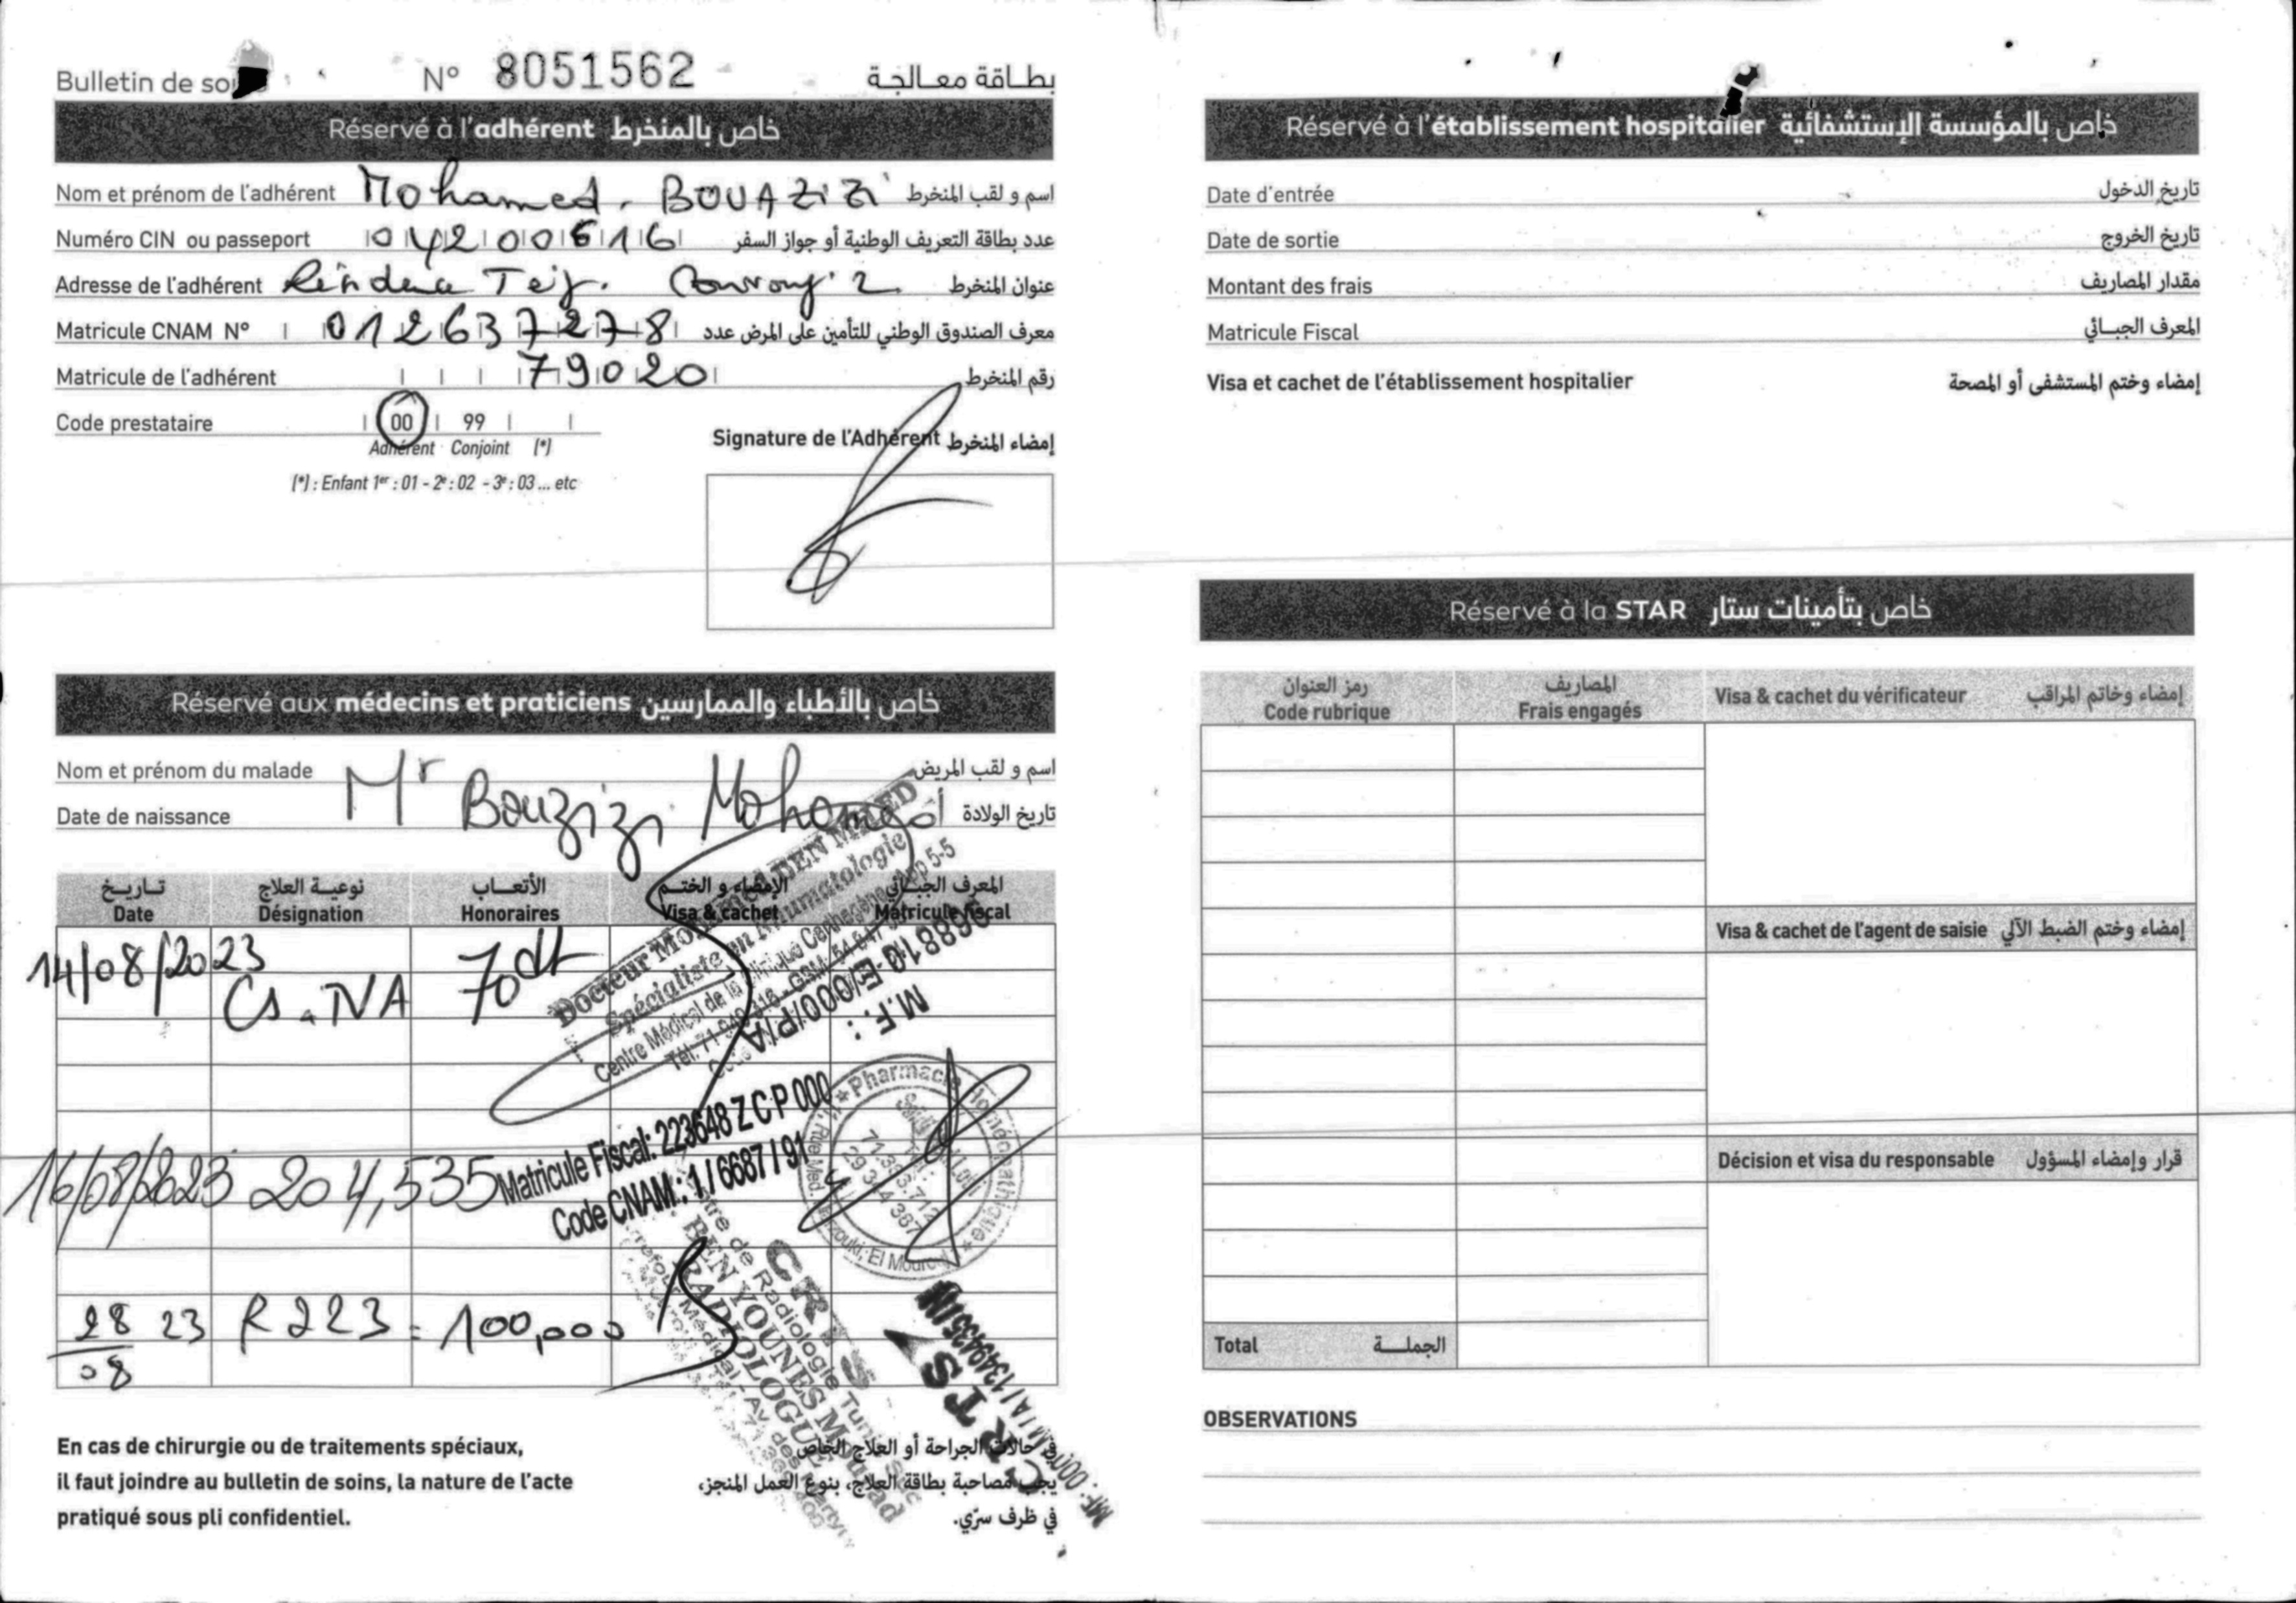 Bulletin de so
N° 8051562
بطاقة معالجة
Réservé à l'adhérent خاص بالمنخرط
Nom et prénom de l'adhérent Mohamed. BOUAZIZI اسم و لقب المنخرط
Numéro CIN ou passeport 04200616 عدد بطاقة التعريف الوطنية أو جواز السفر
Adresse de l'adhérent عنوان المنخرط
Matricule CNAM N° 0126372778 معرف الصندوق الوطني للتأمين على المرض عدد
Matricule de l'adhérent 79020 رقم المنخرط
Code prestataire 00 99
Adhérent Conjoint (*)
(*) : Enfant 1er : 01 - 2e : 02 - 3e : 03 ... etc
Signature de l'Adhérent إمضاء المنخرط
Réservé aux médecins et praticiens خاص بالأطباء والممارسين
Nom et prénom du malade Mr Bouzizi Mohamed اسم و لقب المريض
Date de naissance تاريخ الولادة
تاريخ نوعية العلاج الأتعاب الإمضاء و الختم المعرف الجبائي
Date Désignation Honoraires Visa & cachet Matricule fiscal
14/08/2023 Cs 70 dt
Spécialiste en
Centre Médical de la
M.F. :
Matricule Fiscal: 223648 Z C P 000
Code CNAM : 1 / 6687 / 91
16/08/2023 204,535
Pharmacie
28 23 R223 = 100,000
08
Centre de Radiologie
BEN YOUNES Mourad
RADIOLOGUE
CRTS
En cas de chirurgie ou de traitements spéciaux,
il faut joindre au bulletin de soins, la nature de l'acte
pratiqué sous pli confidentiel.
في حالات الجراحة أو العلاج الخاص
يجب مصاحبة بطاقة العلاج، بنوع العمل المنجز،
في ظرف سرّي.
Réservé à l'établissement hospitalier خاص بالمؤسسة الإستشفائية
Date d'entrée تاريخ الدخول
Date de sortie تاريخ الخروج
Montant des frais مقدار المصاريف
Matricule Fiscal المعرف الجبائي
Visa et cachet de l'établissement hospitalier إمضاء وختم المستشفى أو المصحة
Réservé à la STAR خاص بتأمينات ستار
رمز العنوان المصاريف
Code rubrique Frais engagés
Visa & cachet du vérificateur إمضاء وخاتم المراقب
Visa & cachet de l'agent de saisie إمضاء وختم الضبط الآلي
Décision et visa du responsable قرار وإمضاء المسؤول
Total الجملة
OBSERVATIONS